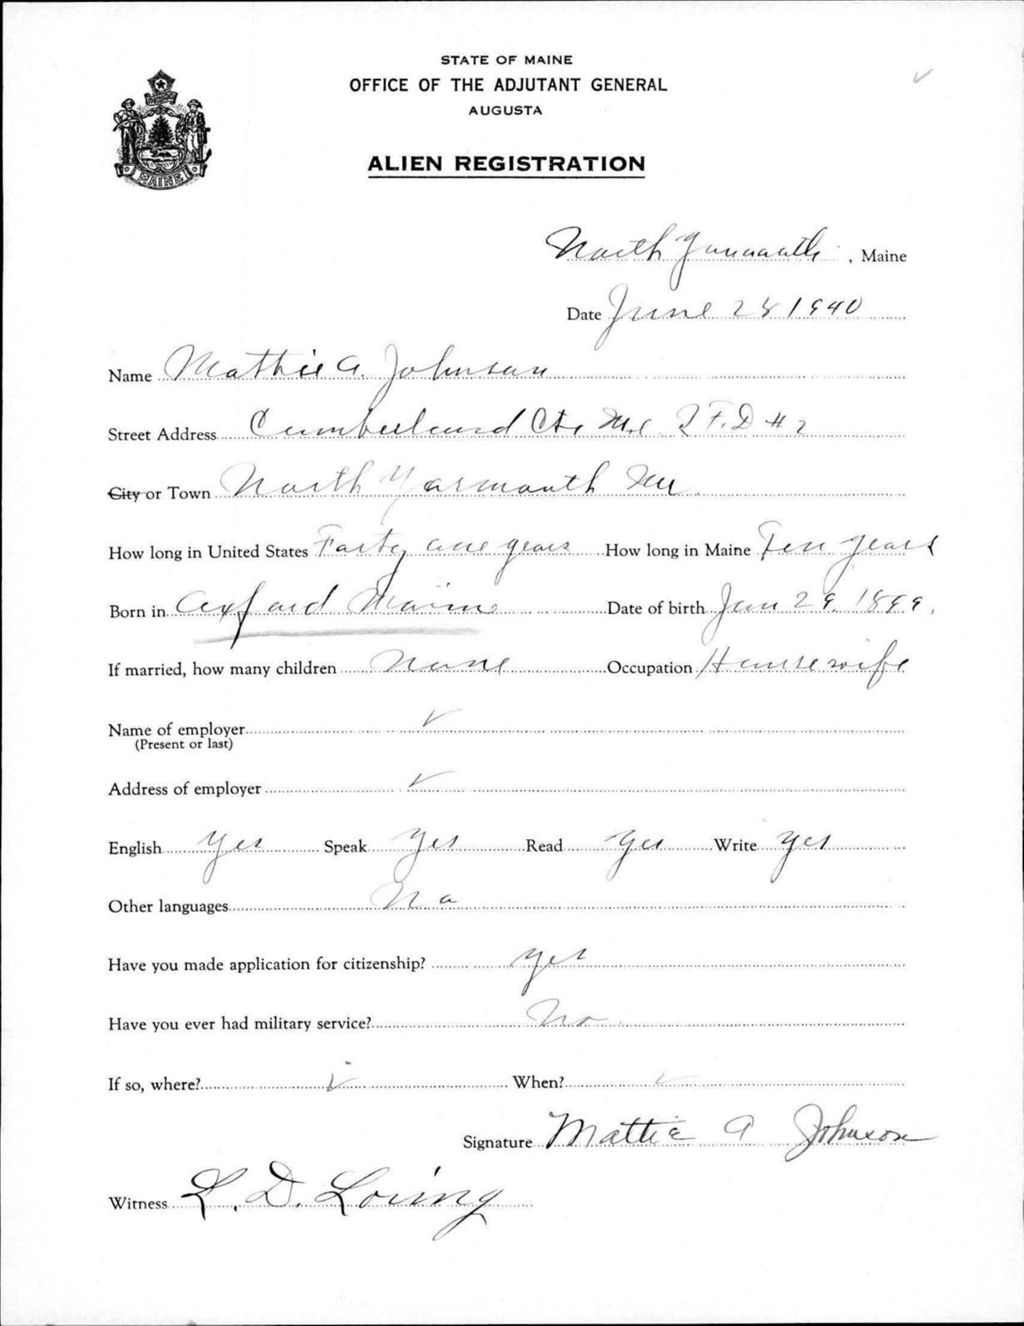 STATE OF MAINE
OFFICE OF THE ADJUTANT GENERAL
AUGUSTA
MAINE
ALIEN REGISTRATION
North Yarmouth, Maine
Date June 28 1940
Name Mathie A. Johnson
Street Address Cumberland Ctr Me R F.D #2
City or Town North Yarmouth Me
How long in United States Forty one years How long in Maine Ten years
Born in Oxford Maine Date of birth Jan 29, 1899,
If married, how many children None Occupation Housewife
Name of employer ✓
(Present or last)
Address of employer ✓
English yes Speak yes Read yes Write yes
Other languages No
Have you made application for citizenship? yes
Have you ever had military service? No
If so, where? ✓ When? ✓
Signature Mattie A Johnson
Witness L. D. Loring